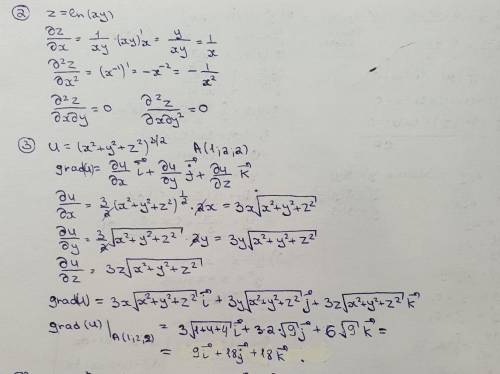 ② z = ln(xy)
∂z/∂x = 1/xy · (xy)'x = y/xy = 1/x
∂²z/∂x² = (x⁻¹)' = -x⁻² = - 1/x²
∂²z/∂x∂y = 0 ∂²z/∂x∂y² = 0
③ u = (x²+y²+z²)^3/2 A(1,2,2)
grad(u) = ∂u/∂x i⃗ + ∂u/∂y j⃗ + ∂u/∂z k⃗
∂u/∂x = 3/2 (x²+y²+z²)^1/2 · 2x = 3x√(x²+y²+z²)
∂u/∂y = 3/2 √(x²+y²+z²) · 2y = 3y√(x²+y²+z²)
∂u/∂z = 3z√(x²+y²+z²)
grad(u) = 3x√(x²+y²+z²) i⃗ + 3y√(x²+y²+z²) j⃗ + 3z√(x²+y²+z²) k⃗
grad(u)|A(1,2,2) = 3√(1+4+4) i⃗ + 3·2√9 j⃗ + 6√9 k⃗ =
= 9i⃗ + 18j⃗ + 18k⃗ .